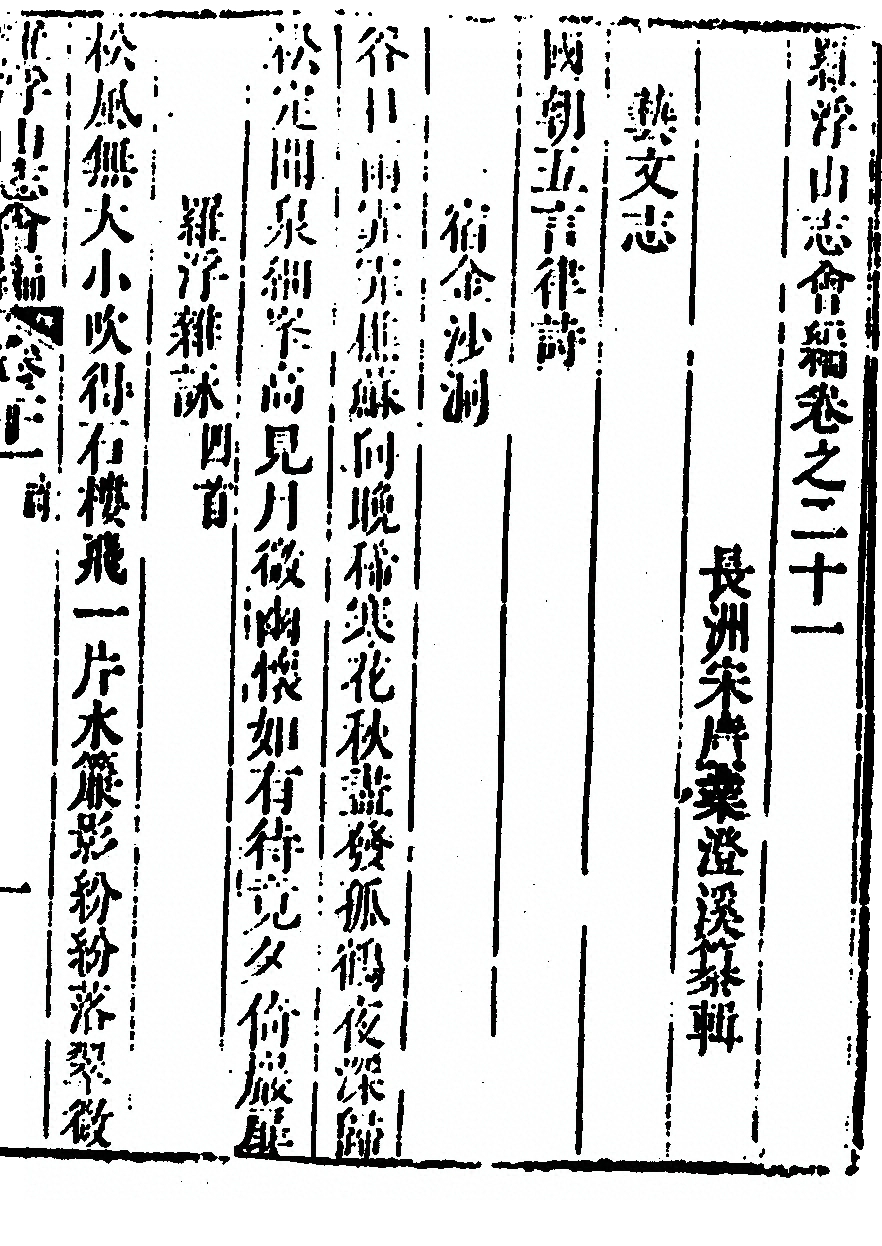 羅浮山志會編卷之二十一
長洲宋廣業澄溪纂輯
藝文志
國朝五言律詩
宿金沙洞
谷口雨霏霏樵蘇向晚稀寒花秋盡發孤鶴夜深歸
松定聞泉細峯高見月微幽懷如有待竟夕倚巖扉
羅浮雜詠
四首
松風無大小吹得石樓飛一片水簾影紛紛落翠微
羅浮山志會編
卷二十一
詩
一